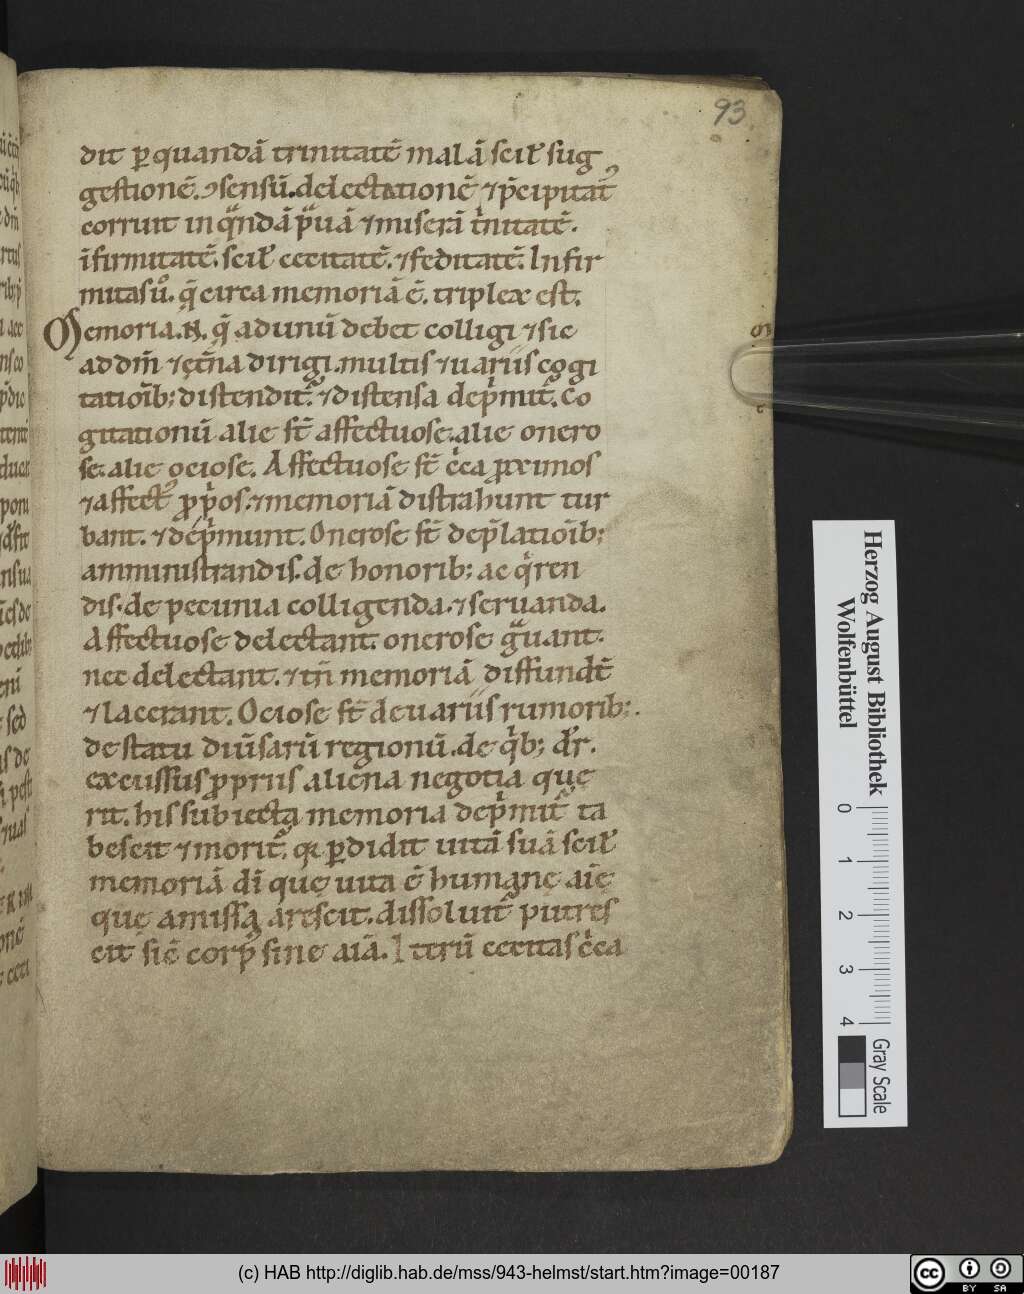 93
dit ꝑ quandā trinitatē malā scił sug
gestionē. ꝯsensū. delectationē ⁊ p̄cipitat᷒
corruit in qͣndā pͣuā ⁊ miserā tͥnitatē.
īfirmitatē. scił cecitatē. ⁊ feditatē. Infir
mitas ū̊. q̄ circa memoriā ē. triplex est.
Memoria .N. q̄ ad unū debet colligi ⁊ sic
ad dm̄ ⁊ ęt̄na dirigi. multis ⁊ uariis cogi
tatioīb; distendit᷑. ⁊ distensa depͥmit᷑. Co
gitationū alie st̄ affectuose. alie onero
se. alie ociose. Affectuose st̄ cͥca ꝓximos
⁊ affect᷒ ꝓpͥos. ⁊ memoriā distrahunt tur
bant. ⁊ depͥmunt. Onerose st̄ de p̄latioīb;
amministrandis. de honorib; ac qͥren
dis. de pecunia colligenda. ⁊ seruanda.
Affectuose delectant. onerose gͣuant.
nec delectant. ⁊ tn̄ memoriā diffundt̄
⁊ lacerant. Ociose st̄ de uariis rumorib;.
de statu diūsarū regionū. de qͥb; dr̄.
excussus ꝓpriis aliena negotia quę
rit. his subiecta memoria depͥmit᷑ ta
bescit ⁊ morit᷑. qꝛ ꝑdidit uitā suā scił
memoriā dī quę uita ē humanę aīę
quę amissa arescit. dissoluit᷑ putres
cit sic̄ corp᷒ sine aīa. Iterū cecitas cͥca
Herzog August Bibliothek
Wolfenbüttel
0 1 2 3 4
Gray Scale
(c) HAB http://diglib.hab.de/mss/943-helmst/start.htm?image=00187
cc BY SA